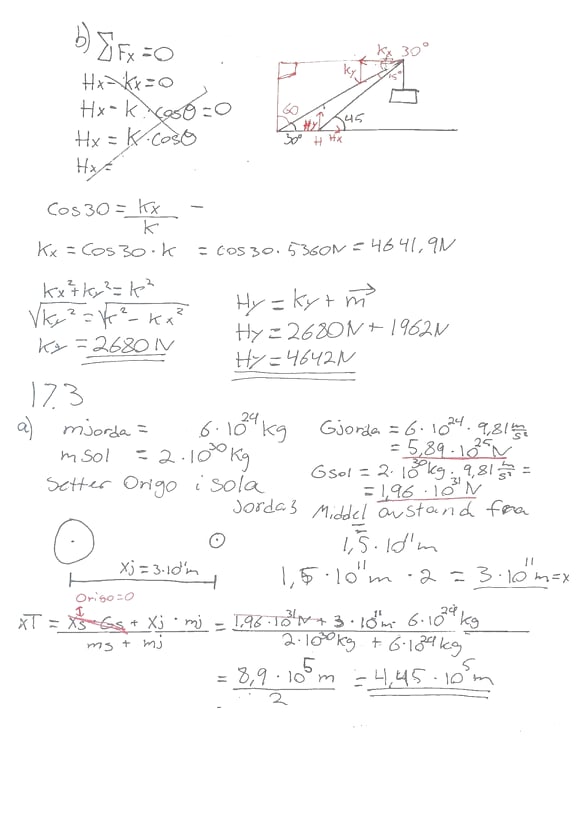 b) ΣFx = 0
Hx - kx = 0
Hx - k · cosθ = 0
Hx = k · cosθ
Hx =
kx 30°
ky
15°
60
30°
Hy
H
Hx
45
Cos30 = kx / k –
kx = cos30 · k = cos30 · 5360N = 4641,9N
kx² + ky² = k²
√ky² = √k² - kx²
ky = 2680N
Hy = ky + m
Hy = 2680N + 1962N
Hy = 4642N
17.3
a) mjorda = 6 · 10²⁴ kg
msol = 2 · 10³⁰ kg
Setter Origo i sola
Gjorda = 6 · 10²⁴ · 9,81 m/s²
= 5,89 · 10²⁵ N
Gsol = 2 · 10³⁰ kg · 9,81 m/s² =
= 1,96 · 10³¹ N
Jordas Middel avstand fra
1,5 · 10¹¹ m
xj = 3 · 10¹¹ m
1,5 · 10¹¹ m · 2 = 3 · 10¹¹ m = x
Origo = 0
xT = xs · Gs + xj · mj / ms + mj = 1,96 · 10³¹ N + 3 · 10¹¹ m · 6 · 10²⁴ kg / 2 · 10³⁰ kg + 6 · 10²⁴ kg
= 8,9 · 10⁵ m / 2 = 4,45 · 10⁵ m